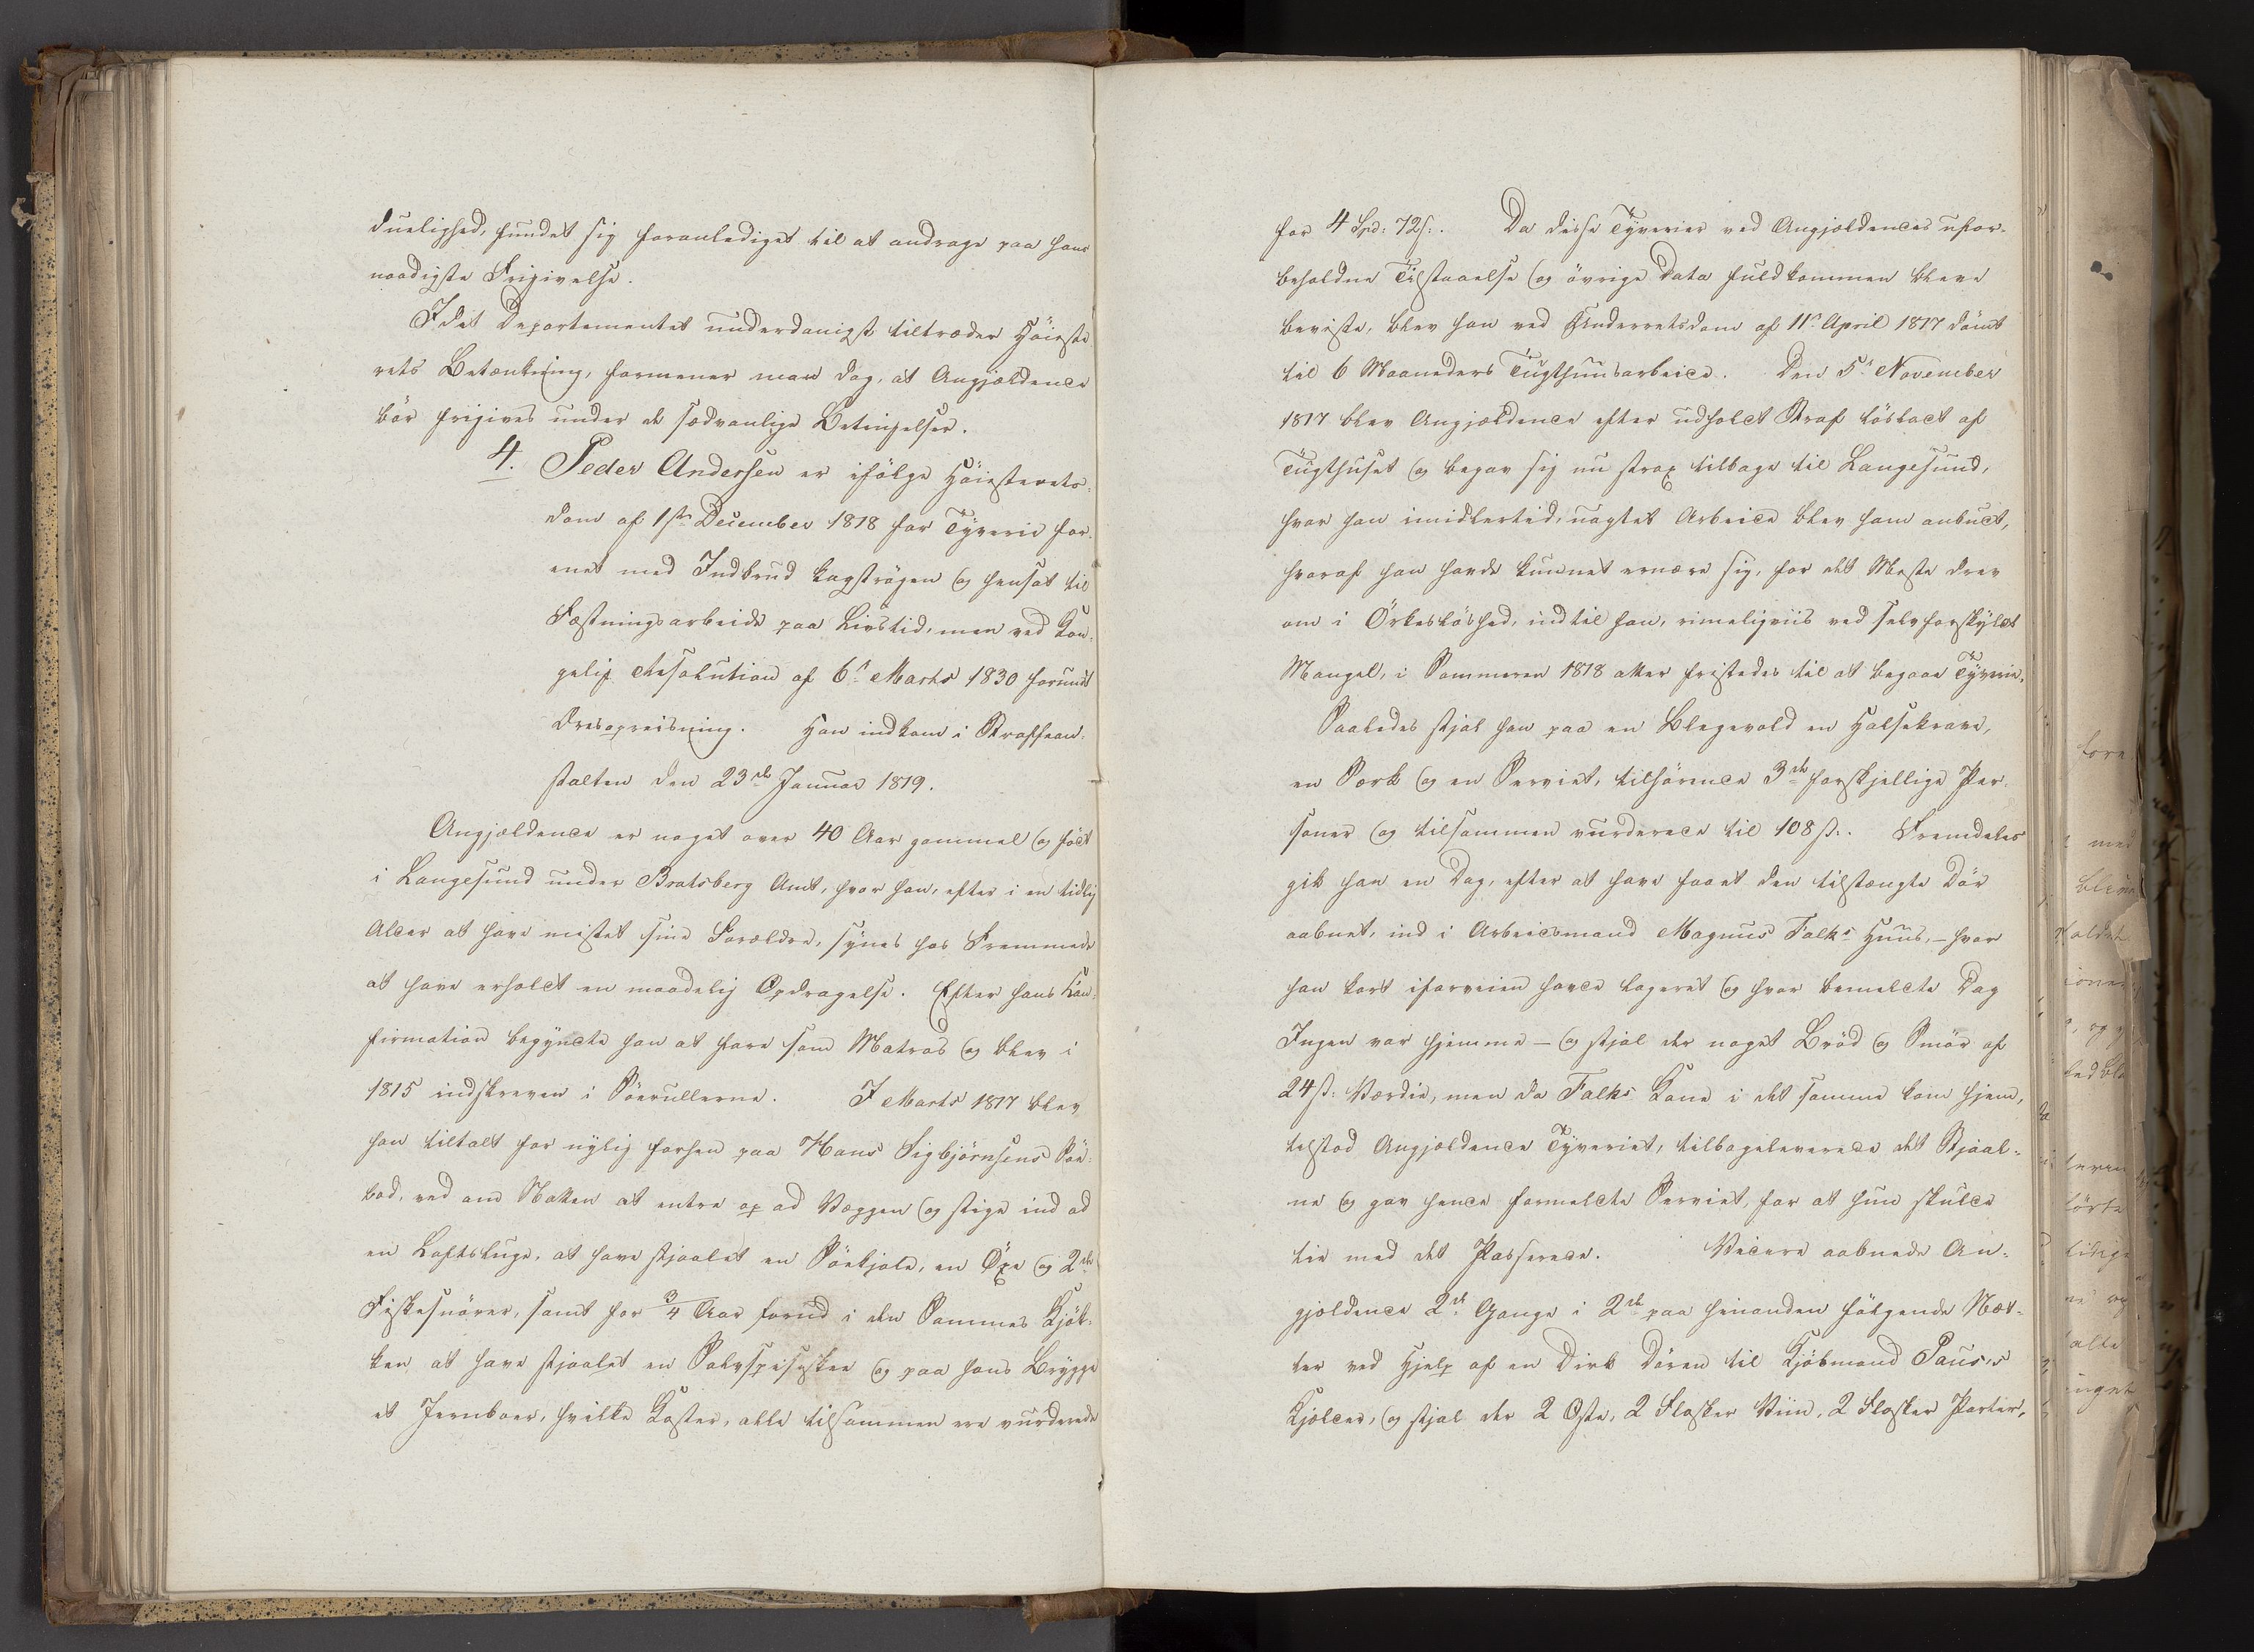 duelighed, fundet sig foranlediget til at andrage paa hans
naadigste Frigivelse.
Idet Departementet underdanigst tiltræder Höieste
rets Betænkning, formener man dog, at Angjældende
bör frigives under de sædvanlige Betingelser.
4. Peder Andersen er ifölge Höiesterets-
dom af 1ste December 1818 for Tyverie for-
enet med Indbrud kagströgen og hensat til
Fæstningsarbeide paa Livstid, men ved Kon-
gelig Resolution af 6te Marts 1830 forundt
Æresopreisning. Han indkom i Straffean-
stalten den 23de Januar 1819.
Angjældende er noget over 40 Aar gammel og födt
i Langesund under Bratsberg Amt, hvor han, efter i en tidlig
Alder at have mistet sine Forældre, synes hos Fremmede
at have erholdt en maadelig Opdragelse. Efter hans Kon-
firmation begyndte han at fare som Matros og blev i
1815 indskreven i Söerullerne. I Marts 1817 blev
han tiltalt for nylig forhen paa Hans Sigbjörnsens Söe-
bod, ved om Natten at entre op ad Væggen og stige ind ad
en Loftsluge, at have stjaalet en Söekjole, en Öxe og 2de
Fiskesnörer, samt for 3/4 Aar forud i den Sammes Kjök-
ken, at have stjaalet en Sølvspiseskee og paa hans Brygge
et Jernboer, hvilke Koster, alle tilsammen ere vurderede
for 4 Spd: 72 s:. Da disse Tyverier ved Angjældendes ufor-
beholdne Tilstaaelse og övrige Data fuldkommen bleve
beviste, blev han ved Underretsdom af 11te April 1817 dömt
til 6 Maaneders Tugthuusarbeide. Den 5te November
1817 blev Angjældende efter udholdt Straf lösladt af
Tugthuset og begav sig nu strax tilbage til Langesund,
hvor han imidlertid, uagtet Arbeide blev ham anbudt,
hvoraf han havde kunnet ernære sig, for det Meste drev
om i Örkeslöshed, indtil han, rimeligviis ved selvforskyldt
Mangel, i Sommeren 1818 atter fristedes til at begaae Tyverie.
Saaledes stjal han paa en Blegevold en Halsekrave,
en Særk og en Serviet, tilhörende 3de forskjellige Per-
soner og tilsammen vurderede til 108 s:. Fremdeles
gik han en Dag, efter at have faaet den tilstængte Dör
aabnet, ind i Arbeidsmand Magnus Falks Huus, - hvor
han kort iforveien havde logeret og hvor bemeldte Dag
Ingen var hjemme - og stjal der noget Bröd og Smör af
24 s: Værdie, men da Falks Kone i det samme kom hjem,
tilstod Angjældende Tyveriet, tilbageleverede det Stjaal-
ne og gav hende formeldte Serviet, for at hun skulde
tie med det Passerede. Videre aabnede An-
gjældende 2de Gange i 2de paa hinanden fölgende Næt-
ter ved Hjelp af en Dirk Dören til Kjöbmand Paus's
Kjelder, og stjal der 2 Oste, 2 Flasker Viin, 2 Flasker Porter,